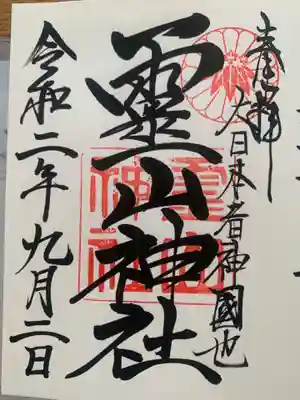 奉拝
大日本者神國也
靈山神社
靈山神社
令和二年九月二日